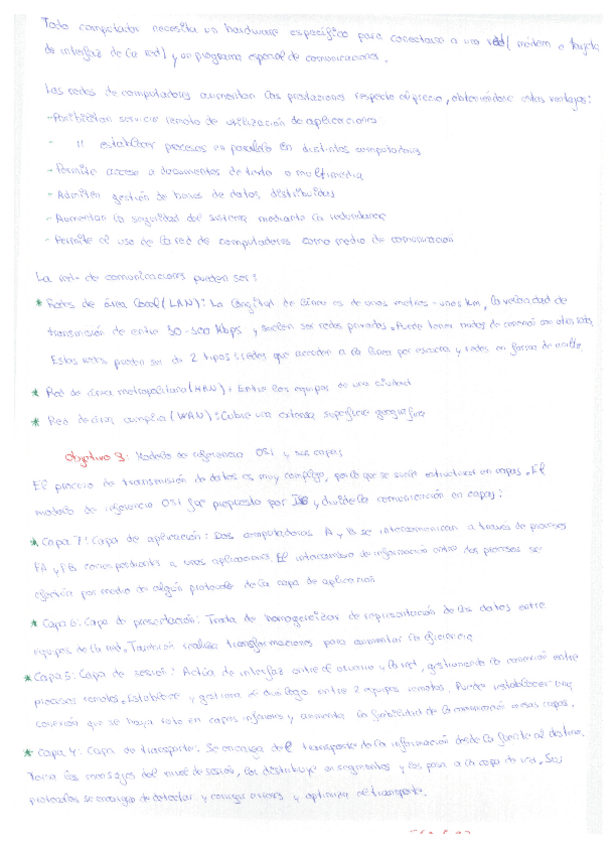 Todo computador necesita un hardware específico para conectarse a una red (módem o tarjeta
de interfaz de la red) y un programa especial de comunicaciones.
Las redes de computadores aumentan las prestaciones respecto al precio, obteniéndose estas ventajas:
- Posibilitan servicio remoto de utilización de aplicaciones
- " establecer procesos en paralelo en distintos computadores
- Permite acceso a documentos de texto o multimedia
- Admiten gestión de bases de datos distribuidas
- Aumentan la seguridad del sistema mediante la redundancia
- Permite el uso de la red de computadores como medio de comunicación
La redes de comunicaciones pueden ser:
* Redes de área local (LAN): La longitud de línea es de unos metros - unos km, la velocidad de
transmisión de entre -500 kbps y suelen ser redes privadas. Puede tener nodos de conexión con otras redes.
Estas redes pueden ser de 2 tipos: redes que acceden a la línea por escucha y redes en forma de anillo
* Red de área metropolitana (MAN): Entre los equipos de una ciudad
* Red de área amplia (WAN): Cubre una extensa superficie geográfica
Objetivo 9: Modelo de referencia OSI y sus capas
El proceso de transmisión de datos es muy complejo, por lo que se suele estructurar en capas. El
modelo de referencia OSI fue propuesto por ISO y divide la comunicación en capas:
* Capa 7: Capa de aplicación: Dos computadoras A y B se intercomunican a través de procesos
PA y PB correspondientes a unas aplicaciones. El intercambio de información entre dos procesos se
efectúa por medio de algún protocolo de la capa de aplicación
* Capa 6: Capa de presentación: Trata de homogeneizar de representación de los datos entre
equipos de la red. También realiza transformaciones para aumentar la eficiencia
* Capa 5: Capa de sesión: Actúa de interfaz entre el usuario y la red, gestionando la conexión entre
procesos remotos. Establece y gestiona el diálogo entre 2 equipos remotos. Puede restablecer una
conexión que se haya roto en capas inferiores y aumenta la fiabilidad de la comunicación en esas capas.
* Capa 4: Capa de transporte: Se encarga del transporte de la información desde la fuente al destino.
Toma los mensajes del nivel de sesión, los distribuye en segmentos y los pasa a la capa de red. Sus
protocolos se encargan de detectar y corregir errores y optimizar el transporte.